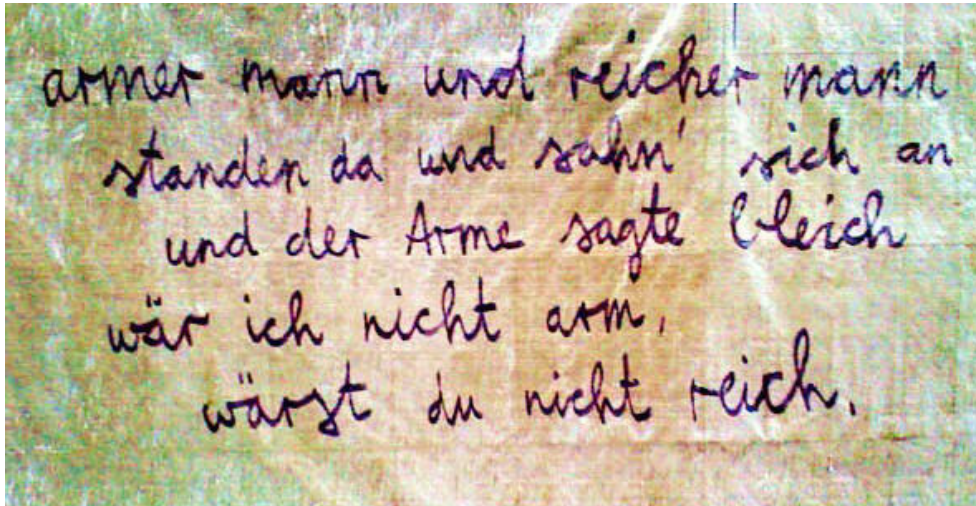 armer mann und reicher mann
standen da und sahn' sich an
und der Arme sagte bleich
wär ich nicht arm,
wärst du nicht reich.